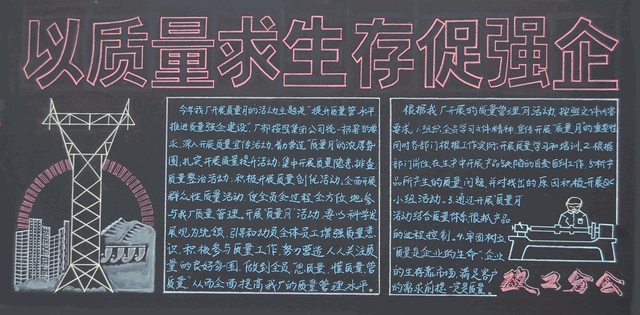 以质量求生存促强企
今年我厂开展质量月的活动主题是“提升质量管水平
推进质量强企建设”,厂部按照集团公司统一部署的要
求,深入开展质量宣传活动,着力营造“质量月”的浓厚氛
围,扎实开展质量提升活动,集中开展质量隐患排查
质量整治活动,积极开展质量创优活动,全面开展
群众性质量活动,使全员全过程全方位地参
与我厂质量管理。开展“质量月”活动,要以科学发
展观为统领,引导和动员全体员工增强质量意
识,积极参与质量工作,努力营造人人关注质
量的良好氛围,做到全员“思质量,懂质量管
质量”从而全面提高我厂的质量管理水平。
根据我厂开展的质量管理月活动,按照文件的
要求,1.组织全员学习文件精神,宣传开展“质量月”的重要性
同时各部门根据工作实际,开展质量学习和培训,2.根据
部门岗位,在生产中开展产品缺陷的自查自纠工作,3.对产
品所产生的质量问题,并对找出的原因积极开展QC
小组活动。3.通过开展质量月
活动结合质量体系,狠抓产品
的过程控制。4.牢固树立
“质量是企业的生命”,企业
的生存靠市场,满足客户
的需求前提一定是质量。
工分会